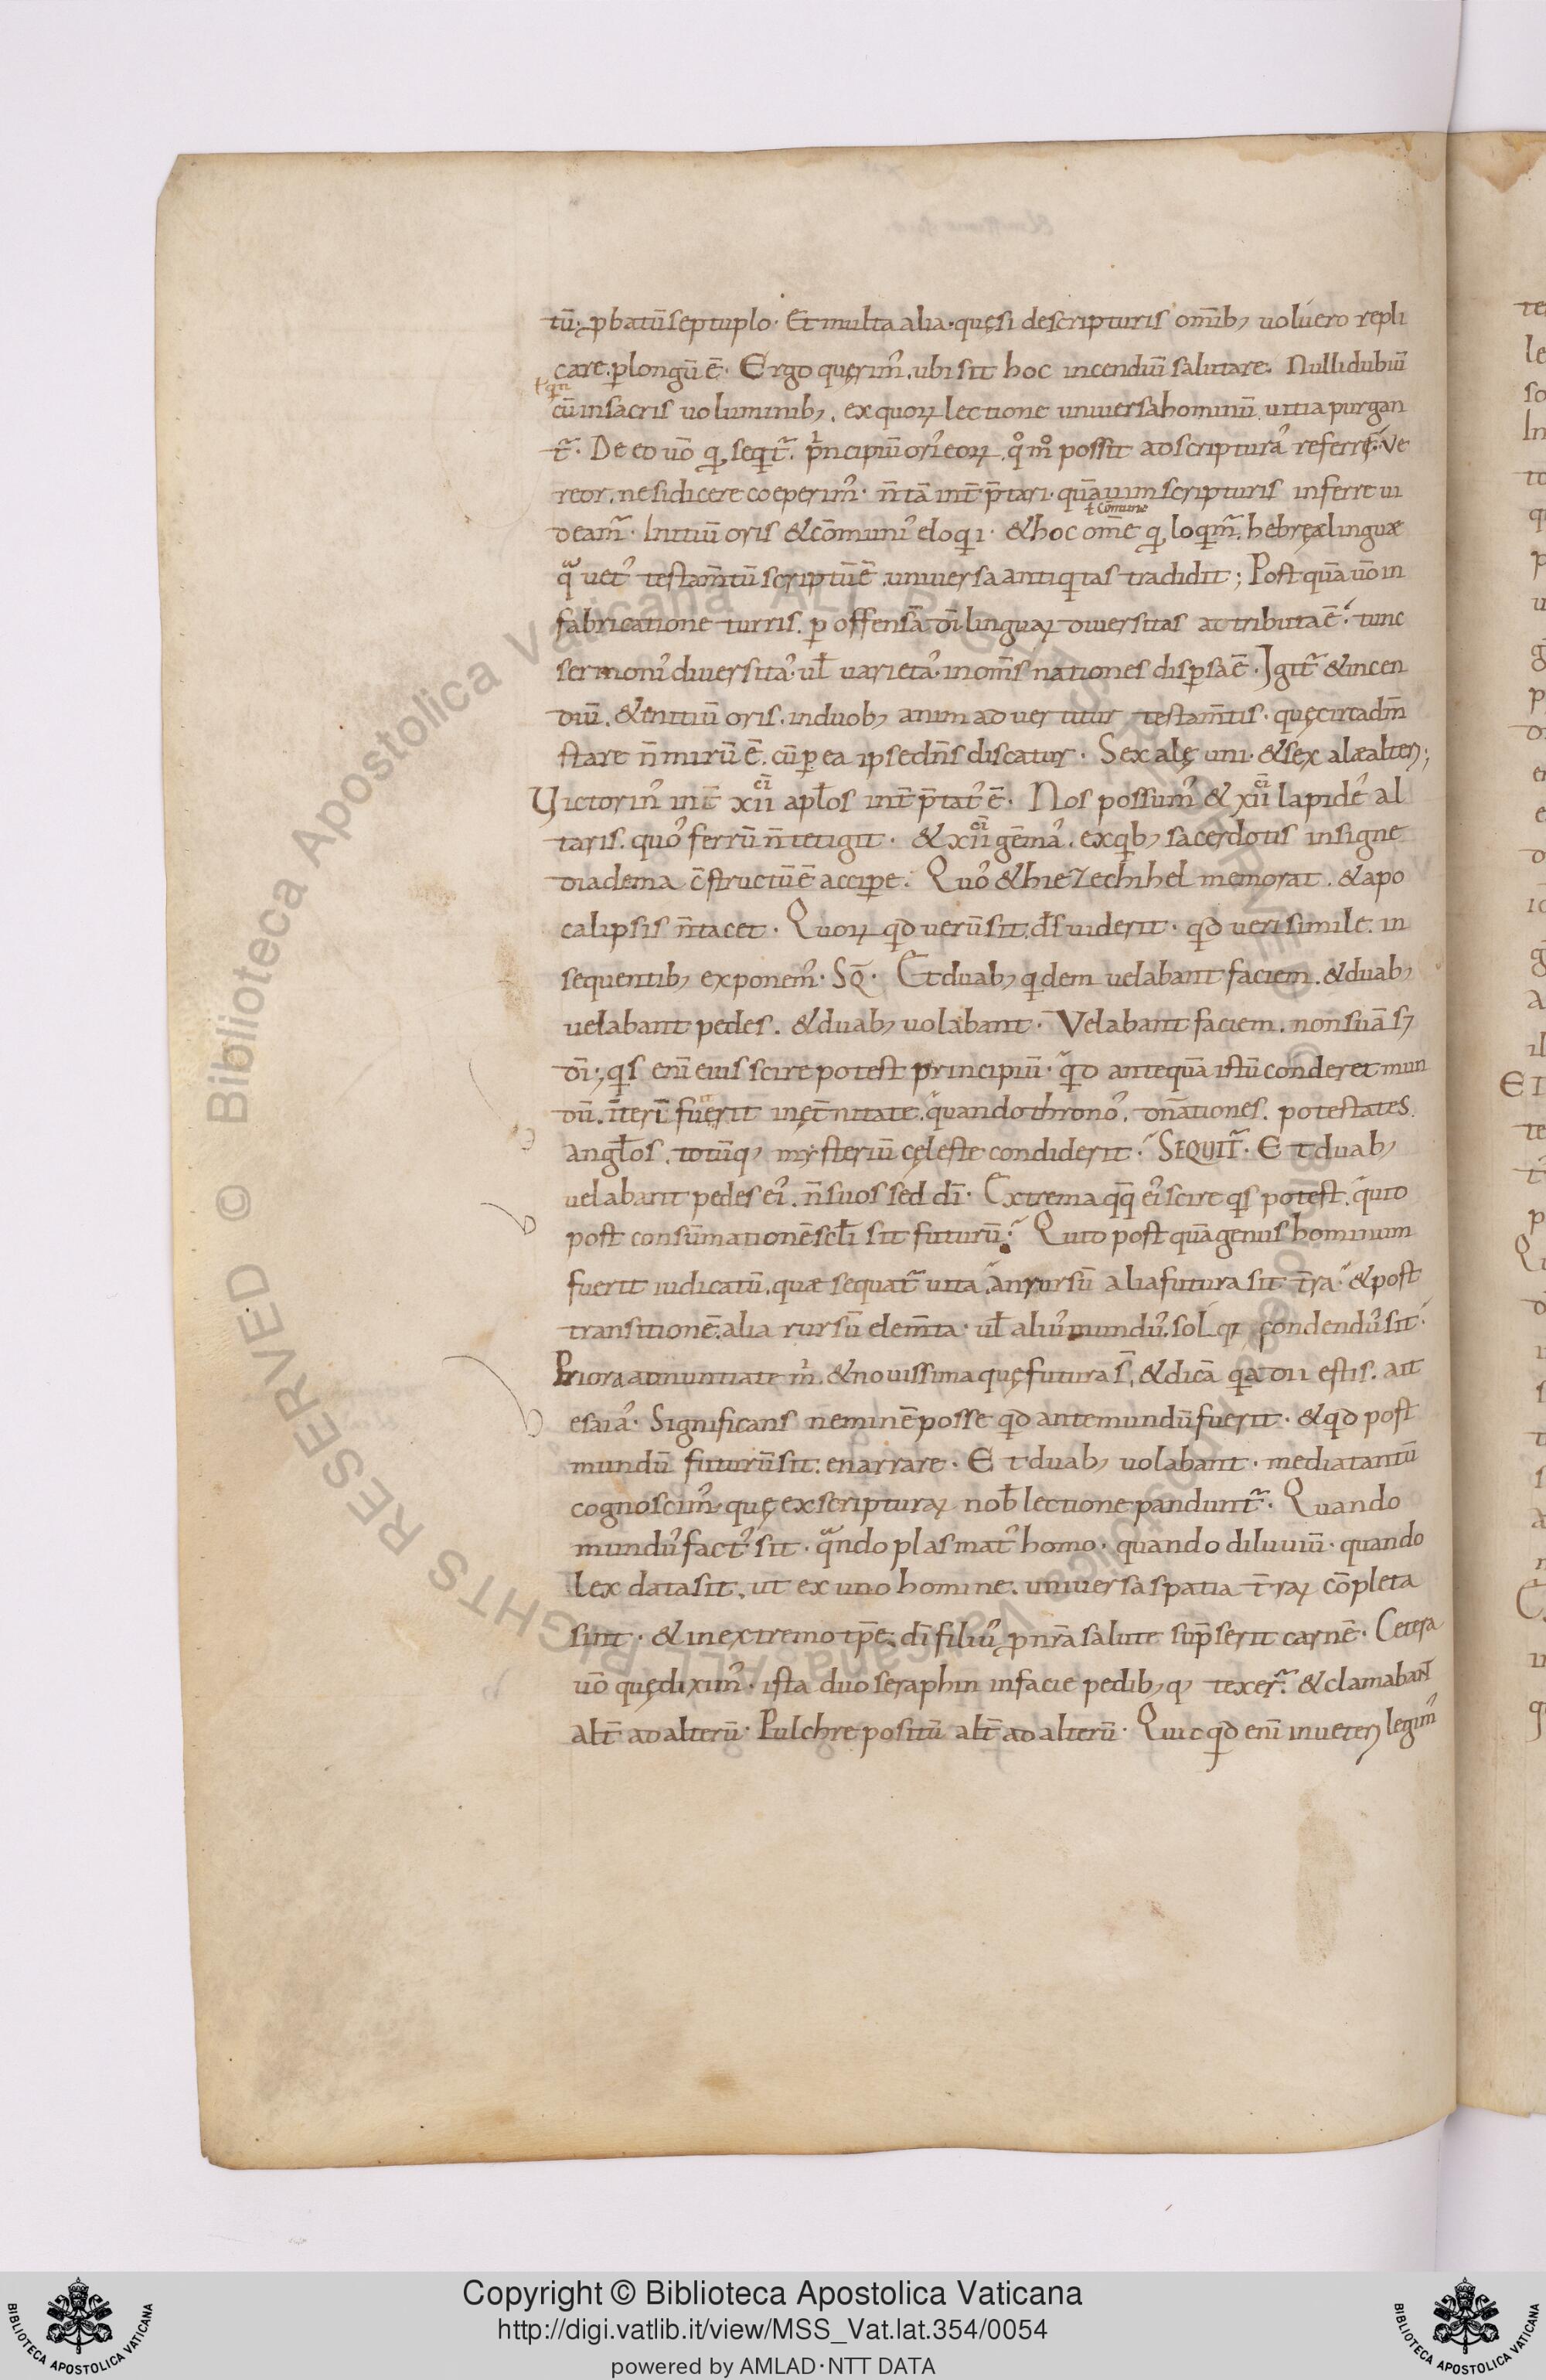 tū· ꝓbatū septuplo· Et multa alia· quę si de scripturis om̄ib; uoluero repli
care. ꝑlongū ē· Ergo quęrim᾽. ubi sit hoc incendiū salutare. Nulli dubiū
ł qn̄
cū in sacris uoluminib;. ex quoꝝ lectione uniuersa hominū uitia purgan
t᷒. De eo uō qđ seqit᷒. pͥncipiū oris᾽ eoꝝ qͦm̊ possit ad scripturā referre· Ve
reor. ne si dicere coeperim᾽· n̄ tā int̄p̄tari. quā uim scripturis inferre ui
ł cōmune
deam᷒· Initiū oris & cōmuni᾽ eloqi· & hoc om̄e qđ loqim᷒. hebręæ linguæ
qᷓ uet᾽ testam̄tū scriptū ē. uniuersa antiqitas tradidit; Post quā uō in
fabricatione turris. ꝑ offensā dī linguaꝝ diuersitas attributa ē· tunc
sermoni᾽ diuersita᾽ uł varieta᾽ in om̄s nationes dispersa ē· Igit᷒ & incen
diū. & initiū oris. in duob; animaduertitur testam̄tis· quę circa dm̄
stare n̄ mirū ē. cū ꝑ ea ipse dn̄s discatur· Sex alę uni· & sex alæ alteri;
Victorin᾽ nr̄ xii aplos int̄p̄tat᾽ ē· Nos possum᾽ & xii lapide᾽ al
taris. quo᾽ ferrū n̄ tetigit· & xii gēma᾽. ex qib; sacerdotis insigne
diadema c̄structū ē accipe. Quo᾽ & hiezechihel memorat. & apo
calipsis n̄ tacet· Quoꝝ qđ uerū sit. ds̄ uiderit· qđ uerisimile. in
sequentib; exponem᾽· SQ̄· Et duab; qidem uelabant faciem. & duab;
uelabant pedes. & duab; uolabant· Velabant faciem. non suā s;
dī; qis enī eius scire potest principiū· qđ antequā istū conderet mun
dū. īterī fuerit in ęt̄nitate. quando throno᾽. dn̄ationes. potestates.
angl̄os. totūq; mysteriū cęleste condiderit· SEQUIT᷒· Et duab;
uelabant pedes ei᾽. n̄ suos sed dī· Extrema qq̄ ei᾽ scire qis potest. quid
post consūmationē scłi sit futurū· Quid postquā genus hominum
fuerit iudicatū. quæ sequat᷒ uita. an rursū alia futura sit t̄ra· & post
transitionē. alia rursū elem̄ta· uł aliu᾽ mundu᾽. solq; condendu᾽ sit·
Priora adnuntiate mͥ. & nouissima quę futura s̄. & dicā qia dii estis. ait
esaia᾽· Significans neminē posse qđ ante mundū fuerit· & qđ post
mundū futurū sit. enarrare· Et duab; uolabant· media tantū
cognoscim᾽· quę ex scripturaꝝ nob̄ lectione pandunt᷒· Quando
mundu᾽ fact᾽ sit· qᷓndo plasmat᾽ homo· quando diluuiū· quando
lex data sit. ut ex uno homine. uniuersa spatia t̄raꝝ cōpleta
sint· & in extremo tp̄e. dī filiu᾽ ꝓ nr̄a salute sūpserit carnē· Cetera
uō quę dixim᾽· ista duo seraphin in facie pedib;q; texer᷒. & clamabant
alt̄ ad alterū· Pulchre positū alt̄ ad alterū· Quicqđ enī in ueteri legim᾽
Copyright © Biblioteca Apostolica Vaticana
http://digi.vatlib.it/view/MSS_Vat.lat.354/0054
powered by AMLAD·NTT DATA